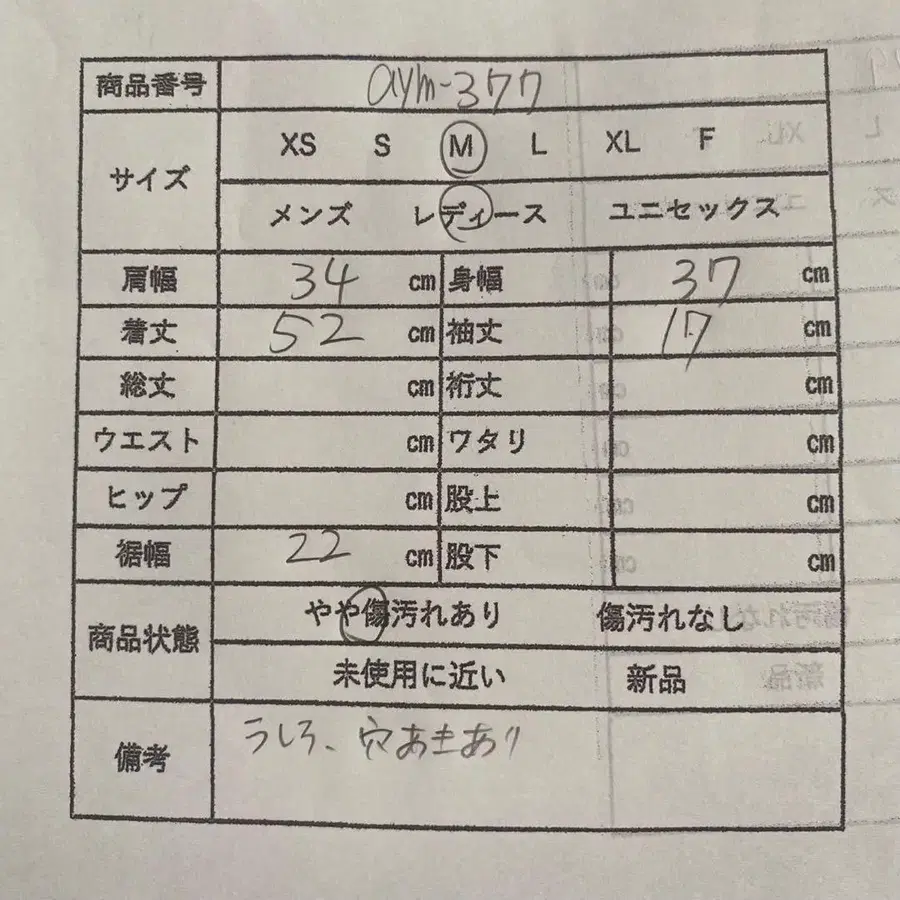 商品番号 aym-377
サイズ
XS S M L XL F
メンズ レディース ユニセックス
肩幅 34 cm 身幅 37 cm
着丈 52 cm 袖丈 17 cm
総丈 cm 裄丈 cm
ウエスト cm ワタリ cm
ヒップ cm 股上 cm
裾幅 22 cm 股下 cm
商品状態
やや傷汚れあり 傷汚れなし
未使用に近い 新品
備考 うしろ、穴あきあり